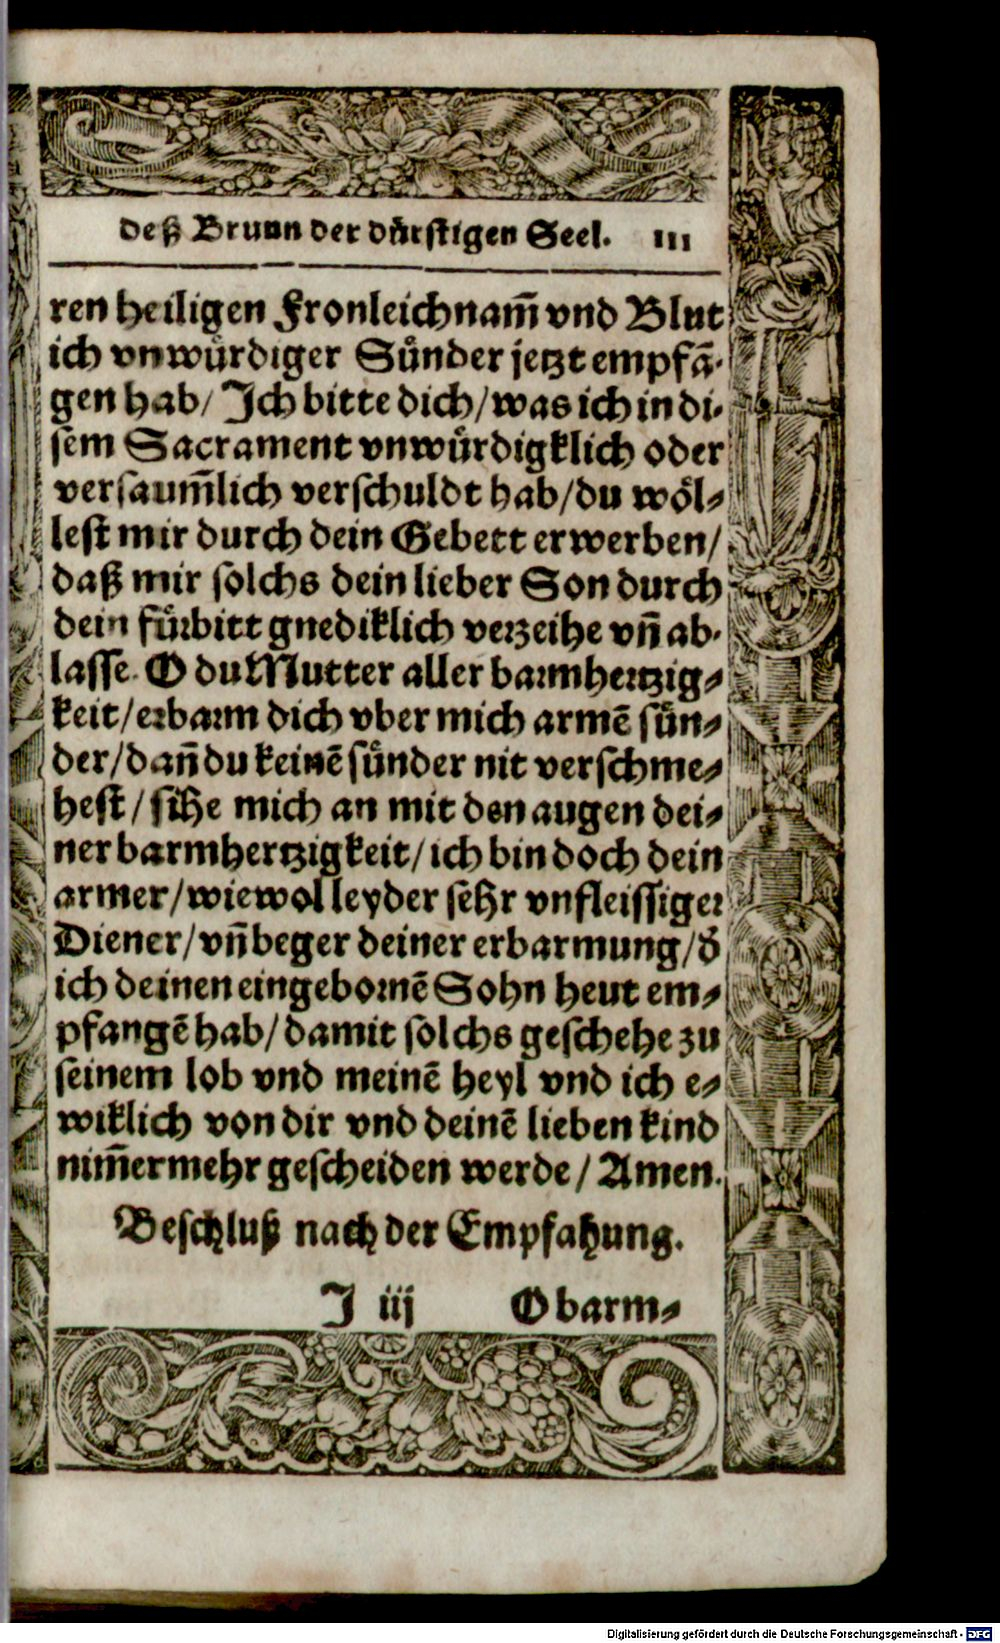 deß Brunn der dürstigen Seel. 111
ren heiligen Fronleichnam̄ vnd Blut
ich vnwürdiger Sünder jetzt empfā-
gen hab/ Ich bitte dich/ was ich in di-
sem Sacrament vnwürdigklich oder
versaum̄lich verschuldt hab/ du wöl-
lest mir durch dein Gebett erwerben/
daß mir solchs dein lieber Son durch
dein fürbitt gnediklich verzeihe vn̄ ab-
lasse. O du Mutter aller barmhertzig-
keit/ erbarm dich vber mich armē sün-
der/ dan̄ du keinē sünder nit verschme-
hest/ sihe mich an mit den augen dei-
ner barmhertzigkeit/ ich bin doch dein
armer/ wiewol leyder sehr vnfleissiger
Diener/ vn̄ beger deiner erbarmung/ d̄
ich deinen eingebornē Sohn heut em-
pfangē hab/ damit solchs geschehe zu
seinem lob vnd meinē heyl vnd ich e-
wiklich von dir vnd deinē lieben kind
nim̄ermehr gescheiden werde/ Amen.
Beschluß nach der Empfahung.
J iij O barm-
Digitalisierung gefördert durch die Deutsche Forschungsgemeinschaft - DFG